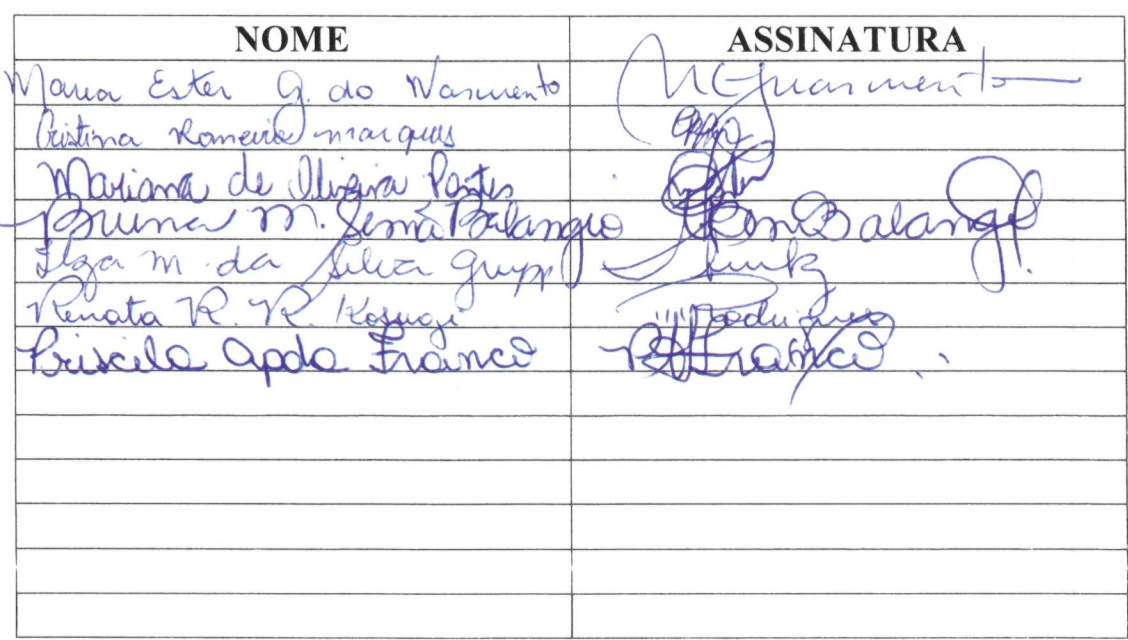 NOME ASSINATURA
Maria Ester G. do Nascimento MGNascimento
Cristina Romeiro Marques
Mariana de Oliveira Pontes
Bruna M. Senna Balangio Balangio
M. da Silva
Renata R. R. Kosugi Rodrigues
Priscila Apda Franco Franco